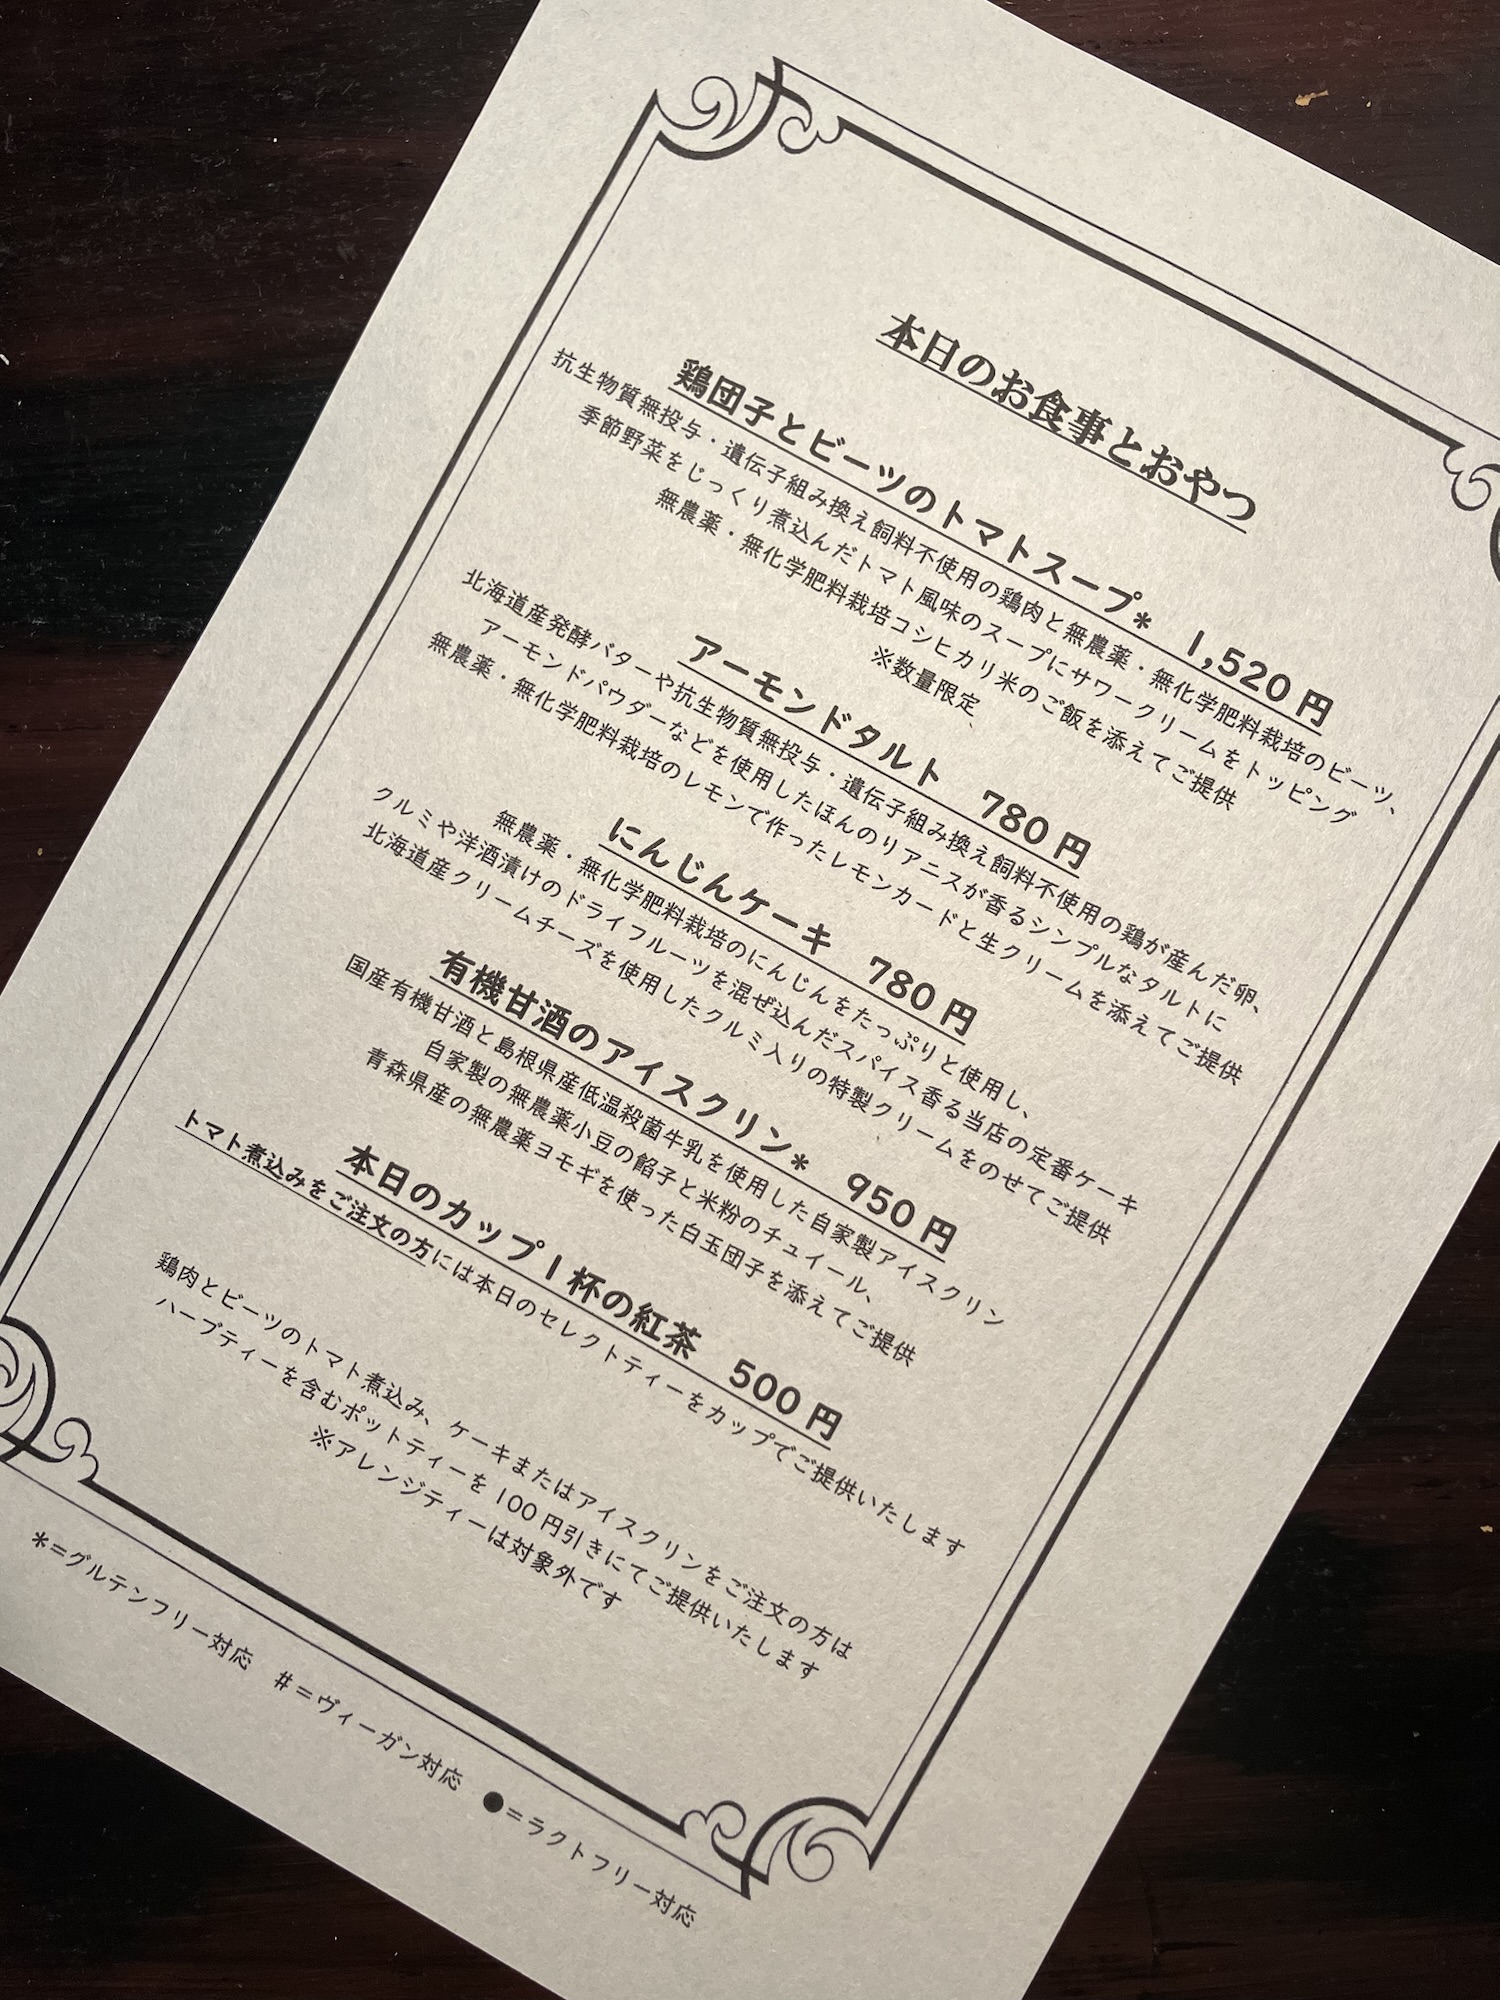 本日のお食事とおやつ
鶏団子とビーツのトマトスープ* 1,520円
抗生物質無投与・遺伝子組み換え飼料不使用の鶏肉と無農薬・無化学肥料栽培のビーツ、
季節野菜をじっくり煮込んだトマト風味のスープにサワークリームをトッピング
無農薬・無化学肥料栽培コシヒカリ米のご飯を添えてご提供
※数量限定、
アーモンドタルト 780円
北海道産発酵バターや抗生物質無投与・遺伝子組み換え飼料不使用の鶏が産んだ卵、
アーモンドパウダーなどを使用したほんのりアニスが香るシンプルなタルトに
無農薬・無化学肥料栽培のレモンで作ったレモンカードと生クリームを添えてご提供
にんじんケーキ 780円
無農薬・無化学肥料栽培のにんじんをたっぷりと使用し、
クルミや洋酒漬けのドライフルーツを混ぜ込んだスパイス香る当店の定番ケーキ
北海道産クリームチーズを使用したクルミ入りの特製クリームをのせてご提供
有機甘酒のアイスクリン* 950円
国産有機甘酒と島根県産低温殺菌牛乳を使用した自家製アイスクリン
自家製の無農薬小豆の餡子と米粉のチュイール、
青森県産の無農薬ヨモギを使った白玉団子を添えてご提供
本日のカップ1杯の紅茶 500円
トマト煮込みをご注文の方には本日のセレクトティーをカップでご提供いたします
鶏肉とビーツのトマト煮込み、ケーキまたはアイスクリンをご注文の方は
ハーブティーを含むポットティーを100円引きにてご提供いたします
※アレンジティーは対象外です
*=グルテンフリー対応 #=ヴィーガン対応 ●=ラクトフリー対応